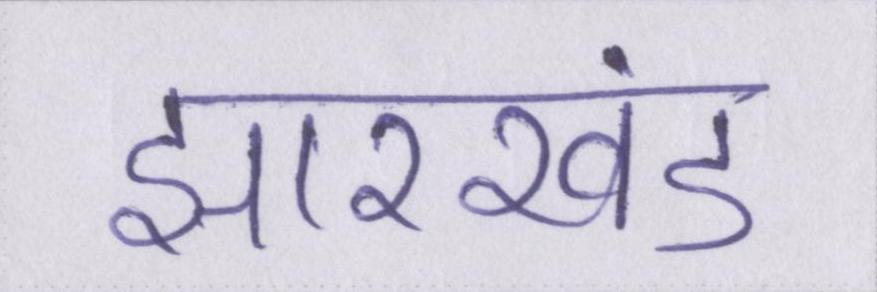 झारखंड